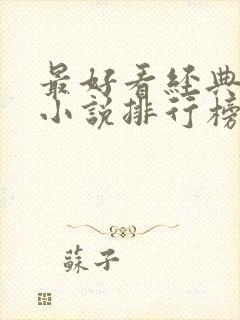 最好看经典
小説排行榜
蘇子